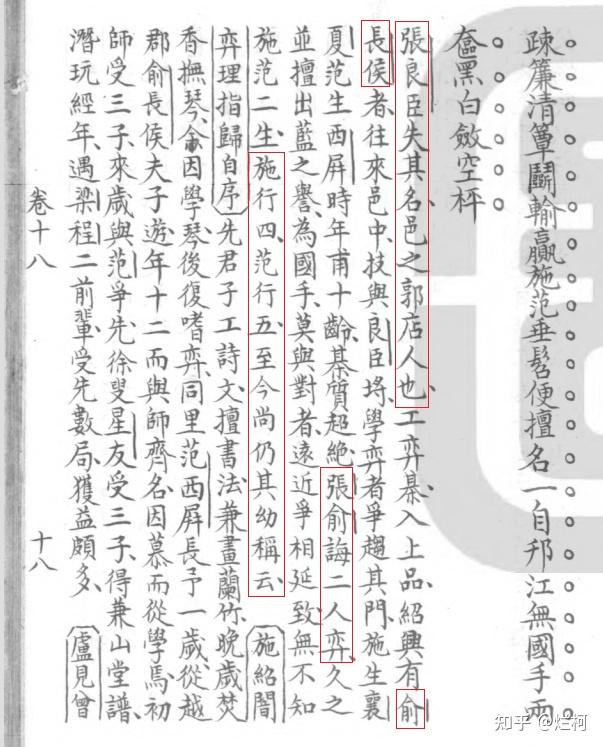 疎簾清簟鬬輸贏施范垂髫便擅名一自邗江無國手兩
奩黑白斂空枰
張良臣失其名邑之郭店人也工弈棊入上品紹興有俞
長侯者往來邑中技與良臣埒學弈者爭趨其門施生襄
夏范生西屏時年甫十齡棊質超絶張俞誨二人弈久之
並擅出藍之譽為國手莫與對者遠近爭相延致無不知
施范二生施行四范行五至今尚仍其幼稱云 施紹闇
弈理指歸自序 先君子工詩文擅書法兼畫蘭竹晚歲焚
香撫琴余因學琴後復嗜弈同里范西屏長予一歲從越
郡俞長侯夫子遊年十二而與師齊名因慕而從學焉初
師受三子來歲與范爭先徐叟星友受三子得兼山堂譜
潛玩經年遇梁程二前輩受先數局獲益頗多 盧見曾
卷十八
十八
知乎 @烂柯